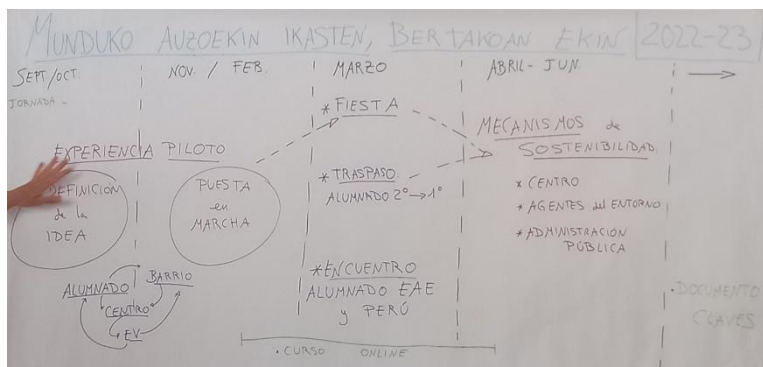 MUNDUKO AUZOEKIN IKASTEN, BERTAKOAN EKIN 2022-23
SEPT/OCT.
JORNADA -
NOV. / FEB.
MARZO
ABRIL - JUN.
EXPERIENCIA PILOTO
DEFINICIÓN
de la
IDEA
PUESTA
en
MARCHA
ALUMNADO
BARRIO
CENTRO
EV
* FIESTA
* TRASPASO:
ALUMNADO 2º → 1º
* ENCUENTRO
ALUMNADO EAE
y PERÚ
• CURSO ONLINE
MECANISMOS de
SOSTENIBILIDAD
* CENTRO
* AGENTES del ENTORNO
* ADMINISTRACIÓN
PÚBLICA
• DOCUMENTO
CLAVES